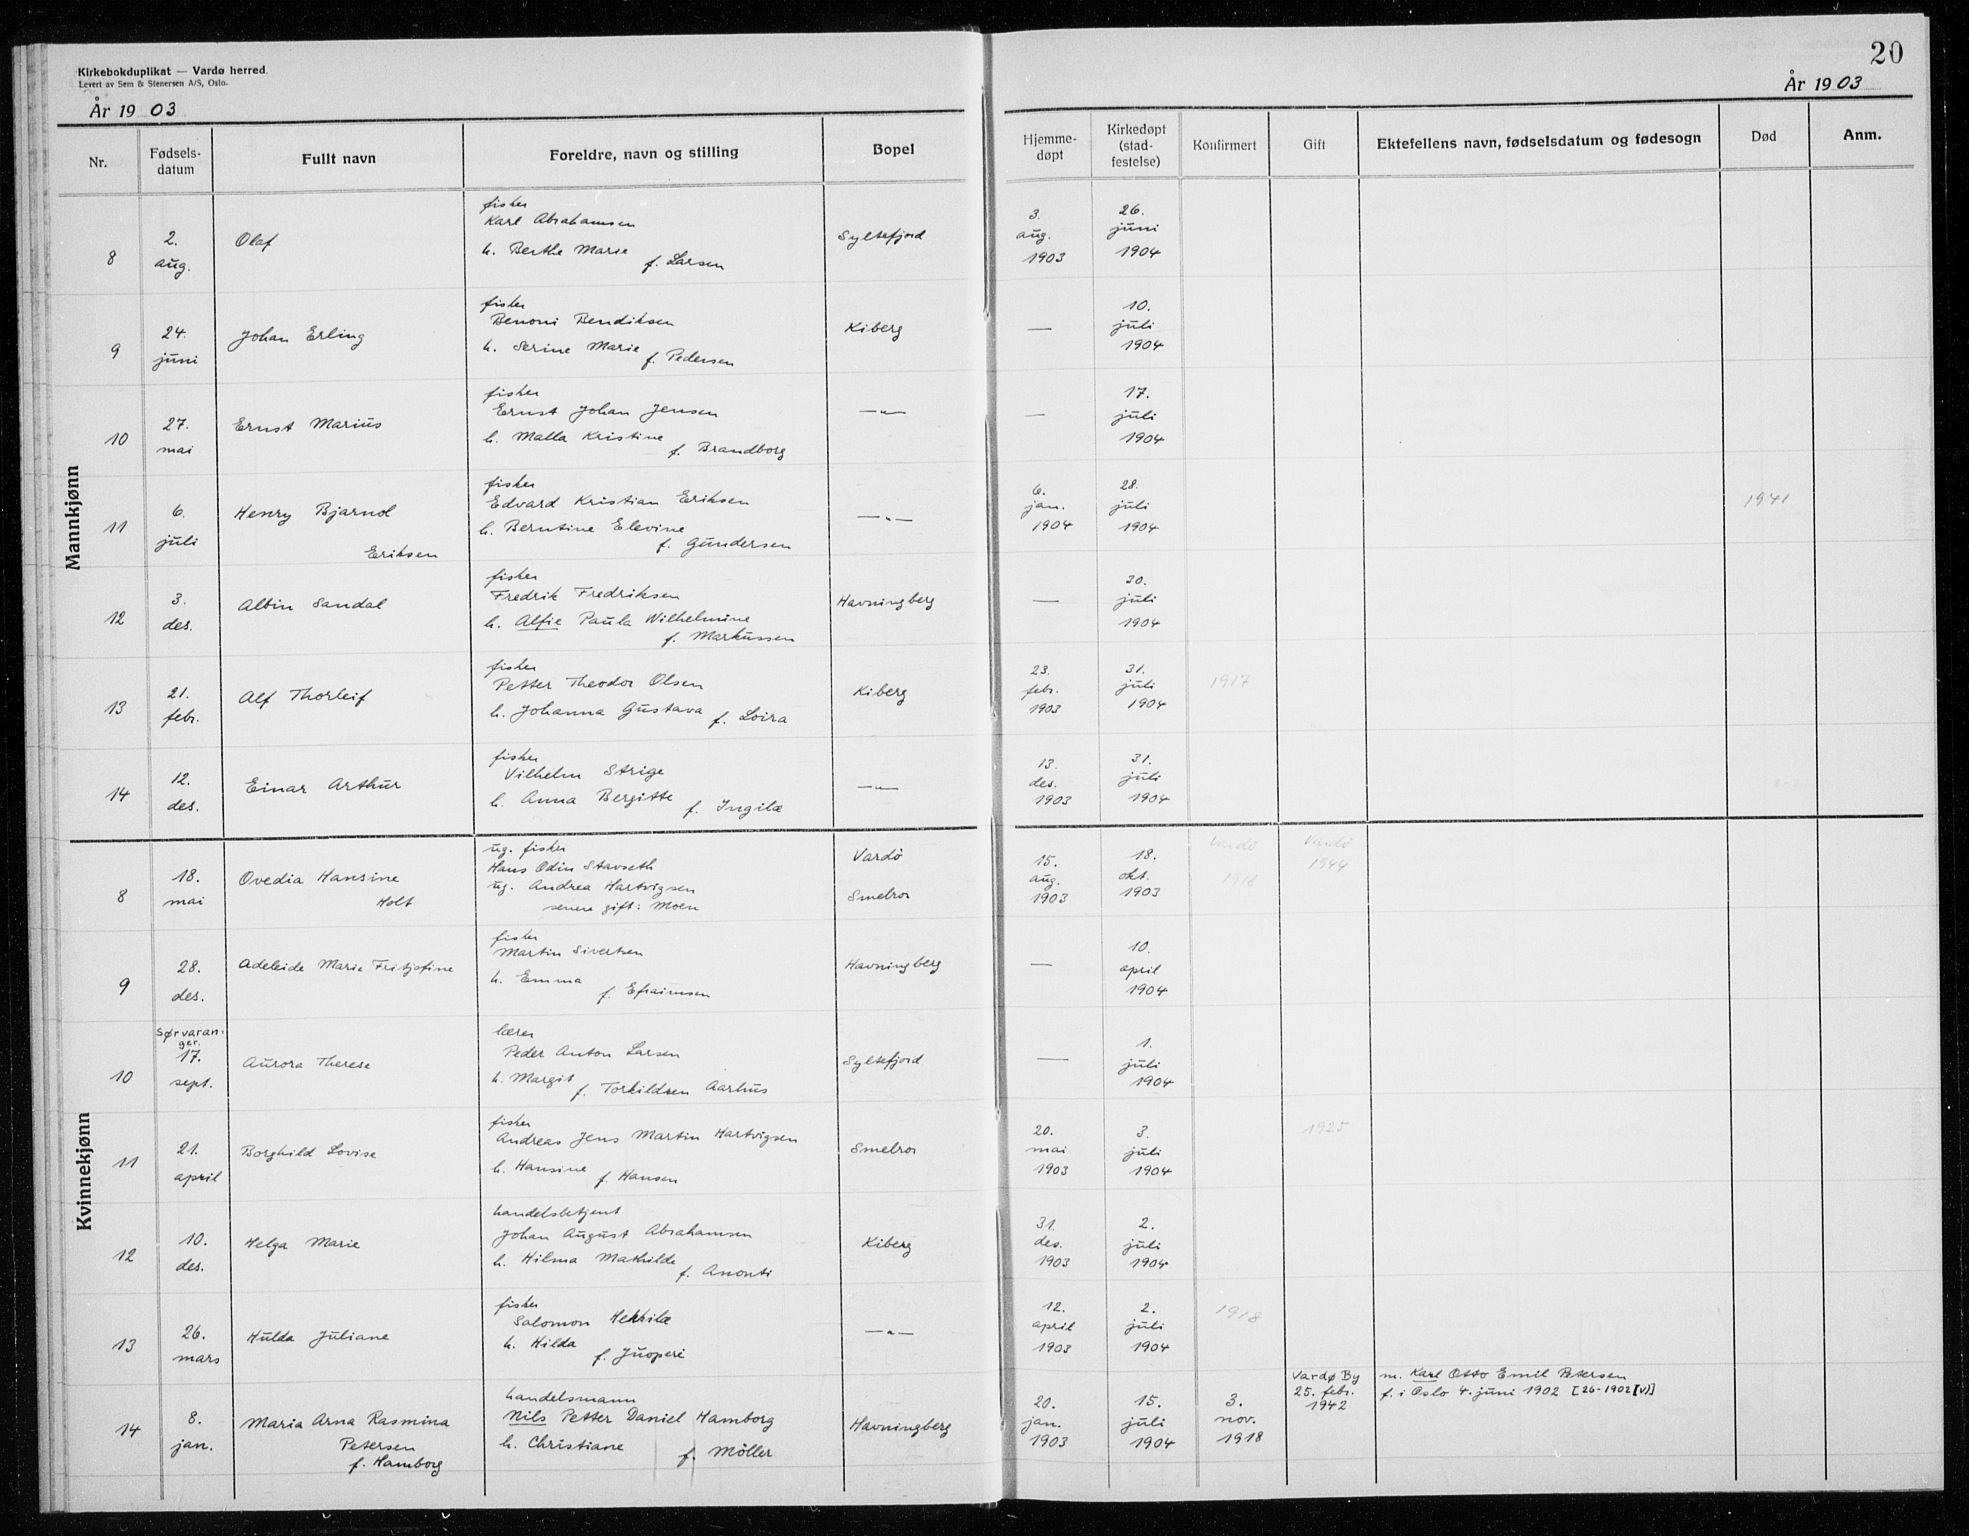 Kirkebokduplikat — Vardø herred.
Levert av Sem & Stenersen A/S, Oslo.
År 1903
20
År 1903
Nr. Fødsels-datum Fullt navn Foreldre, navn og stilling Bopel Hjemme-døpt Kirkedøpt (stad-festelse) Konfirmert Gift Ektefellens navn, fødselsdatum og fødesogn Død Anm.
Mannkjønn
8 2. aug. Olaf
fisker
Karl Abrahamsen
h. Berthe Marie
f. Larsen
Syltefjord
3. aug. 1903
26. juni 1904
9 24. juni Johan Erling
fisker
Benoni Bendiksen
h. Serine Marie
f. Pedersen
Kiberg
—
10. juli 1904
10 27. mai Ernst Marius
fisker
Ernst Johan Jensen
h. Malla Kristine
f. Brandborg
—"—
—
17. juli 1904
11 6. juli Henry Bjarnol
Eriksen
fisker
Edvard Kristian Eriksen
h. Berntine Elevine
f. Gundersen
—"—
6. jan. 1904
28. juli 1904
1941
12 3. des. Albin Sandal
fisker
Fredrik Fredriksen
h. Alfie Paula Wilhelmine
f. Markussen
Havningberg
—
30. juli 1904
13 21. febr. Alf Thorleif
fisker
Petter Theodor Olsen
h. Johanna Gustava f. Loira
Kiberg
23. febr. 1903
31. juli 1904
1917
14 12. des. Einar Arthur
fisker
Vilhelm Strige
h. Anna Bergitte f. Ingilæ
—"—
13. des. 1903
31. juli 1904
Kvinnekjønn
8 18. mai Ovedia Hansine
Holt
ug. fisker
Hans Odin Stavseth
ug. Andrea Hartvigsen
senere gift: Moen
Vardö
Smelror
15. aug. 1903
18. okt. 1903
Vardö 1918
Vardö 1944
9 28. des. Adeleide Marie Fritjofine
fisker
Martin Sivertsen
h. Emma
f. Efraimsen
Havningberg
—
10. april 1904
10 Sørvaranger. 17. sept. Aurora Therese
lærer
Peder Anton Larsen
h. Margit f. Torkildsen Aarhus
Syltefjord
—
1. juli 1904
11 21. april Borghild Lovise
fisker
Andreas Jens Martin Hartvigsen
h. Hansine
f. Hansen
Smelror
20. mai 1903
3. juli 1904
1925
12 10. des. Helga Marie
handelsbetjent
Johan August Abrahamsen
h. Hilma Mathilde
f. Anonti
Kiberg
31. des. 1903
2. juli 1904
13 26. mars Hulda Juliane
fisker
Salomon Hekkilæ
h. Hilda
f. Juoperi
—"—
12. april 1903
2. juli 1904
1918
14 8. jan. Maria Arna Rasmina
Petersen
f. Hamborg
handelsmann
Nils Petter Daniel Hamborg
h. Christiane f. Möller
Havningberg
20. jan. 1903
15. juli 1904
3. nov. 1918
Vardø By 25. febr. 1942
m. Karl Otto Emil Petersen
f. i Oslo 4. juni 1902 [26-1902 [V]]